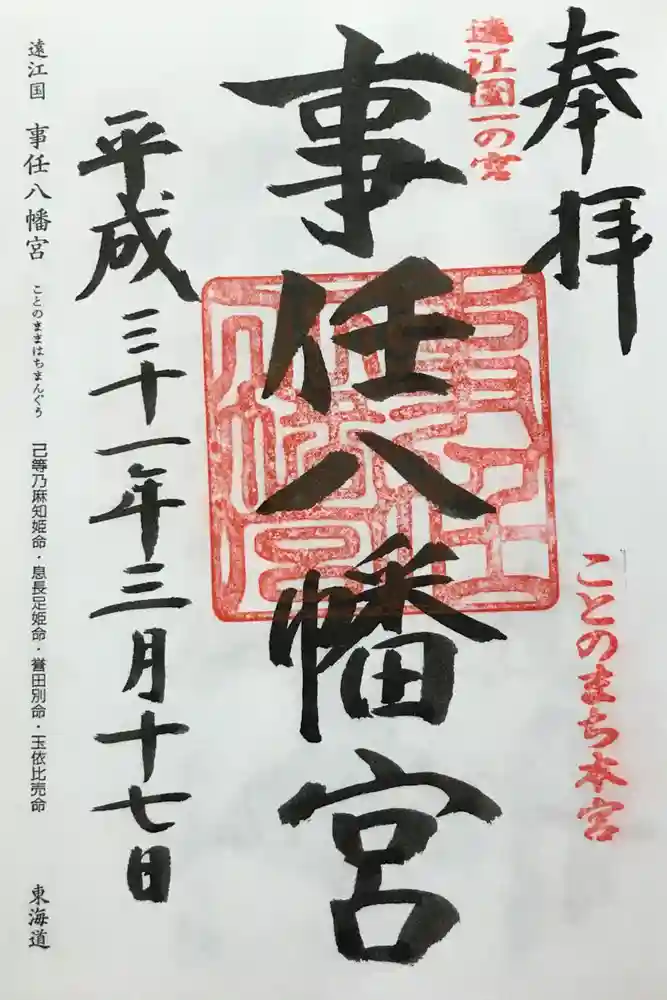 奉拝
遠江国一の宮
ことのまち本宮
事任八幡宮
平成三十一年三月十七日
遠江国 事任八幡宮 ことのままはちまんぐう 己等乃麻知姫命・息長足姫命・誉田別命・玉依比売命 東海道